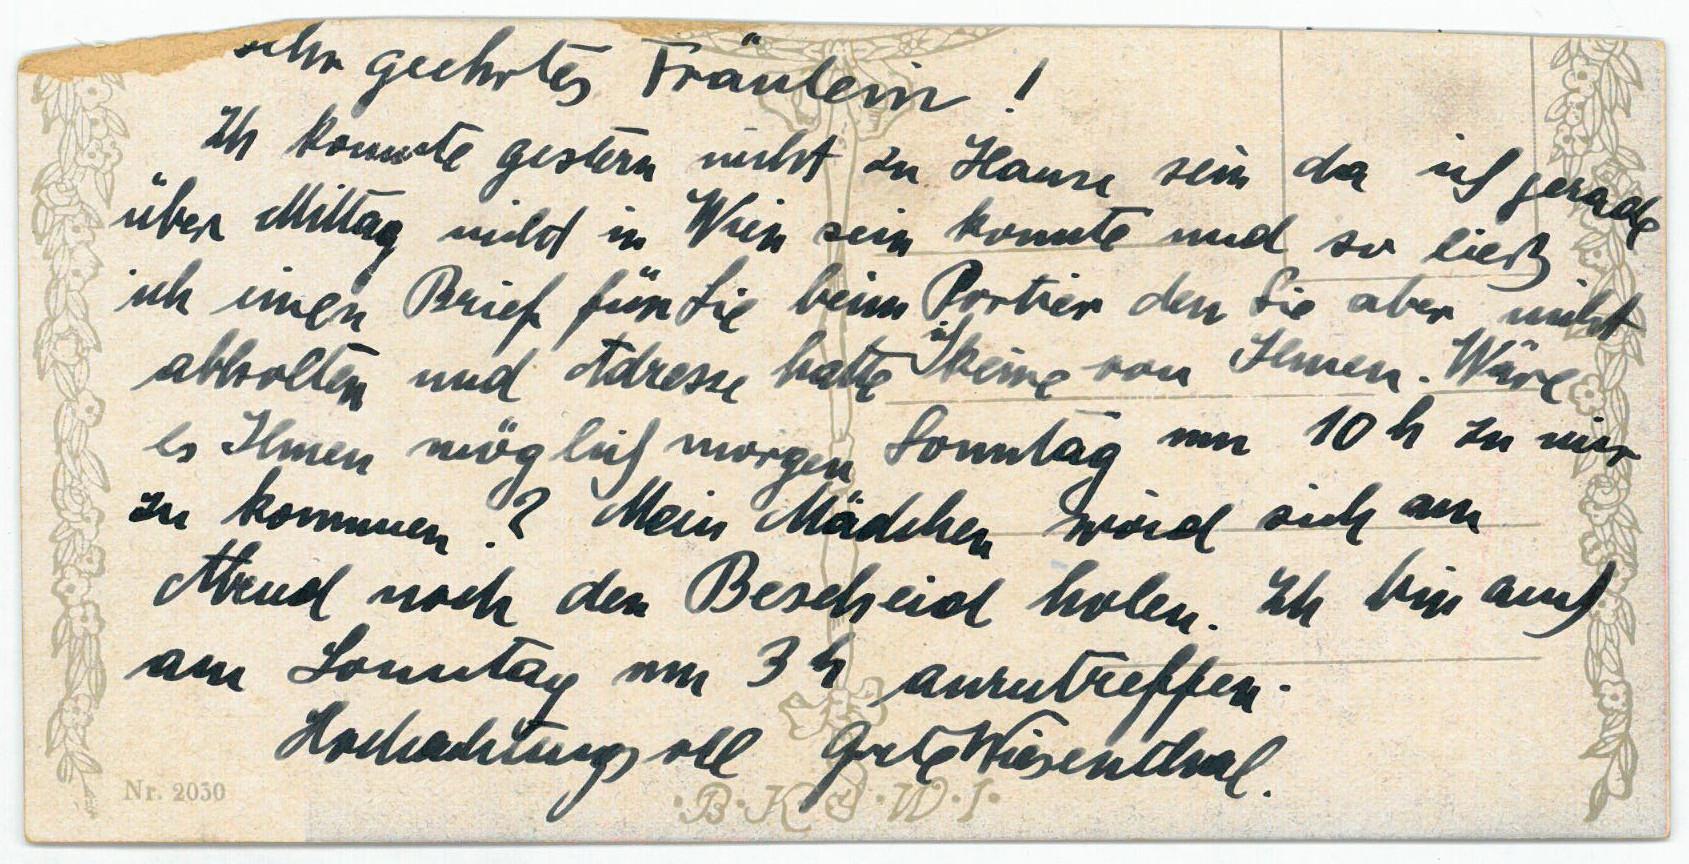 sehr geehrtes Fräulein !
Ich konnte gestern nicht zu Hause sein da ich gerade
über Mittag nicht in Wien sein konnte und so ließ
ich einen Brief für Sie beim Portier den Sie aber nicht
abholten und Adresse hatte ich keine von Ihnen. Wäre
es Ihnen möglich morgen Sonntag um 10 h zu mir
zu kommen.? Mein Mädchen wird sich am
Abend noch den Bescheid holen. Ich bin auch
am Sonntag um 3 h anzutreffen.
Hochachtungsvoll Grete Wiesenthal.
Nr. 2030
·B·K·W·I·